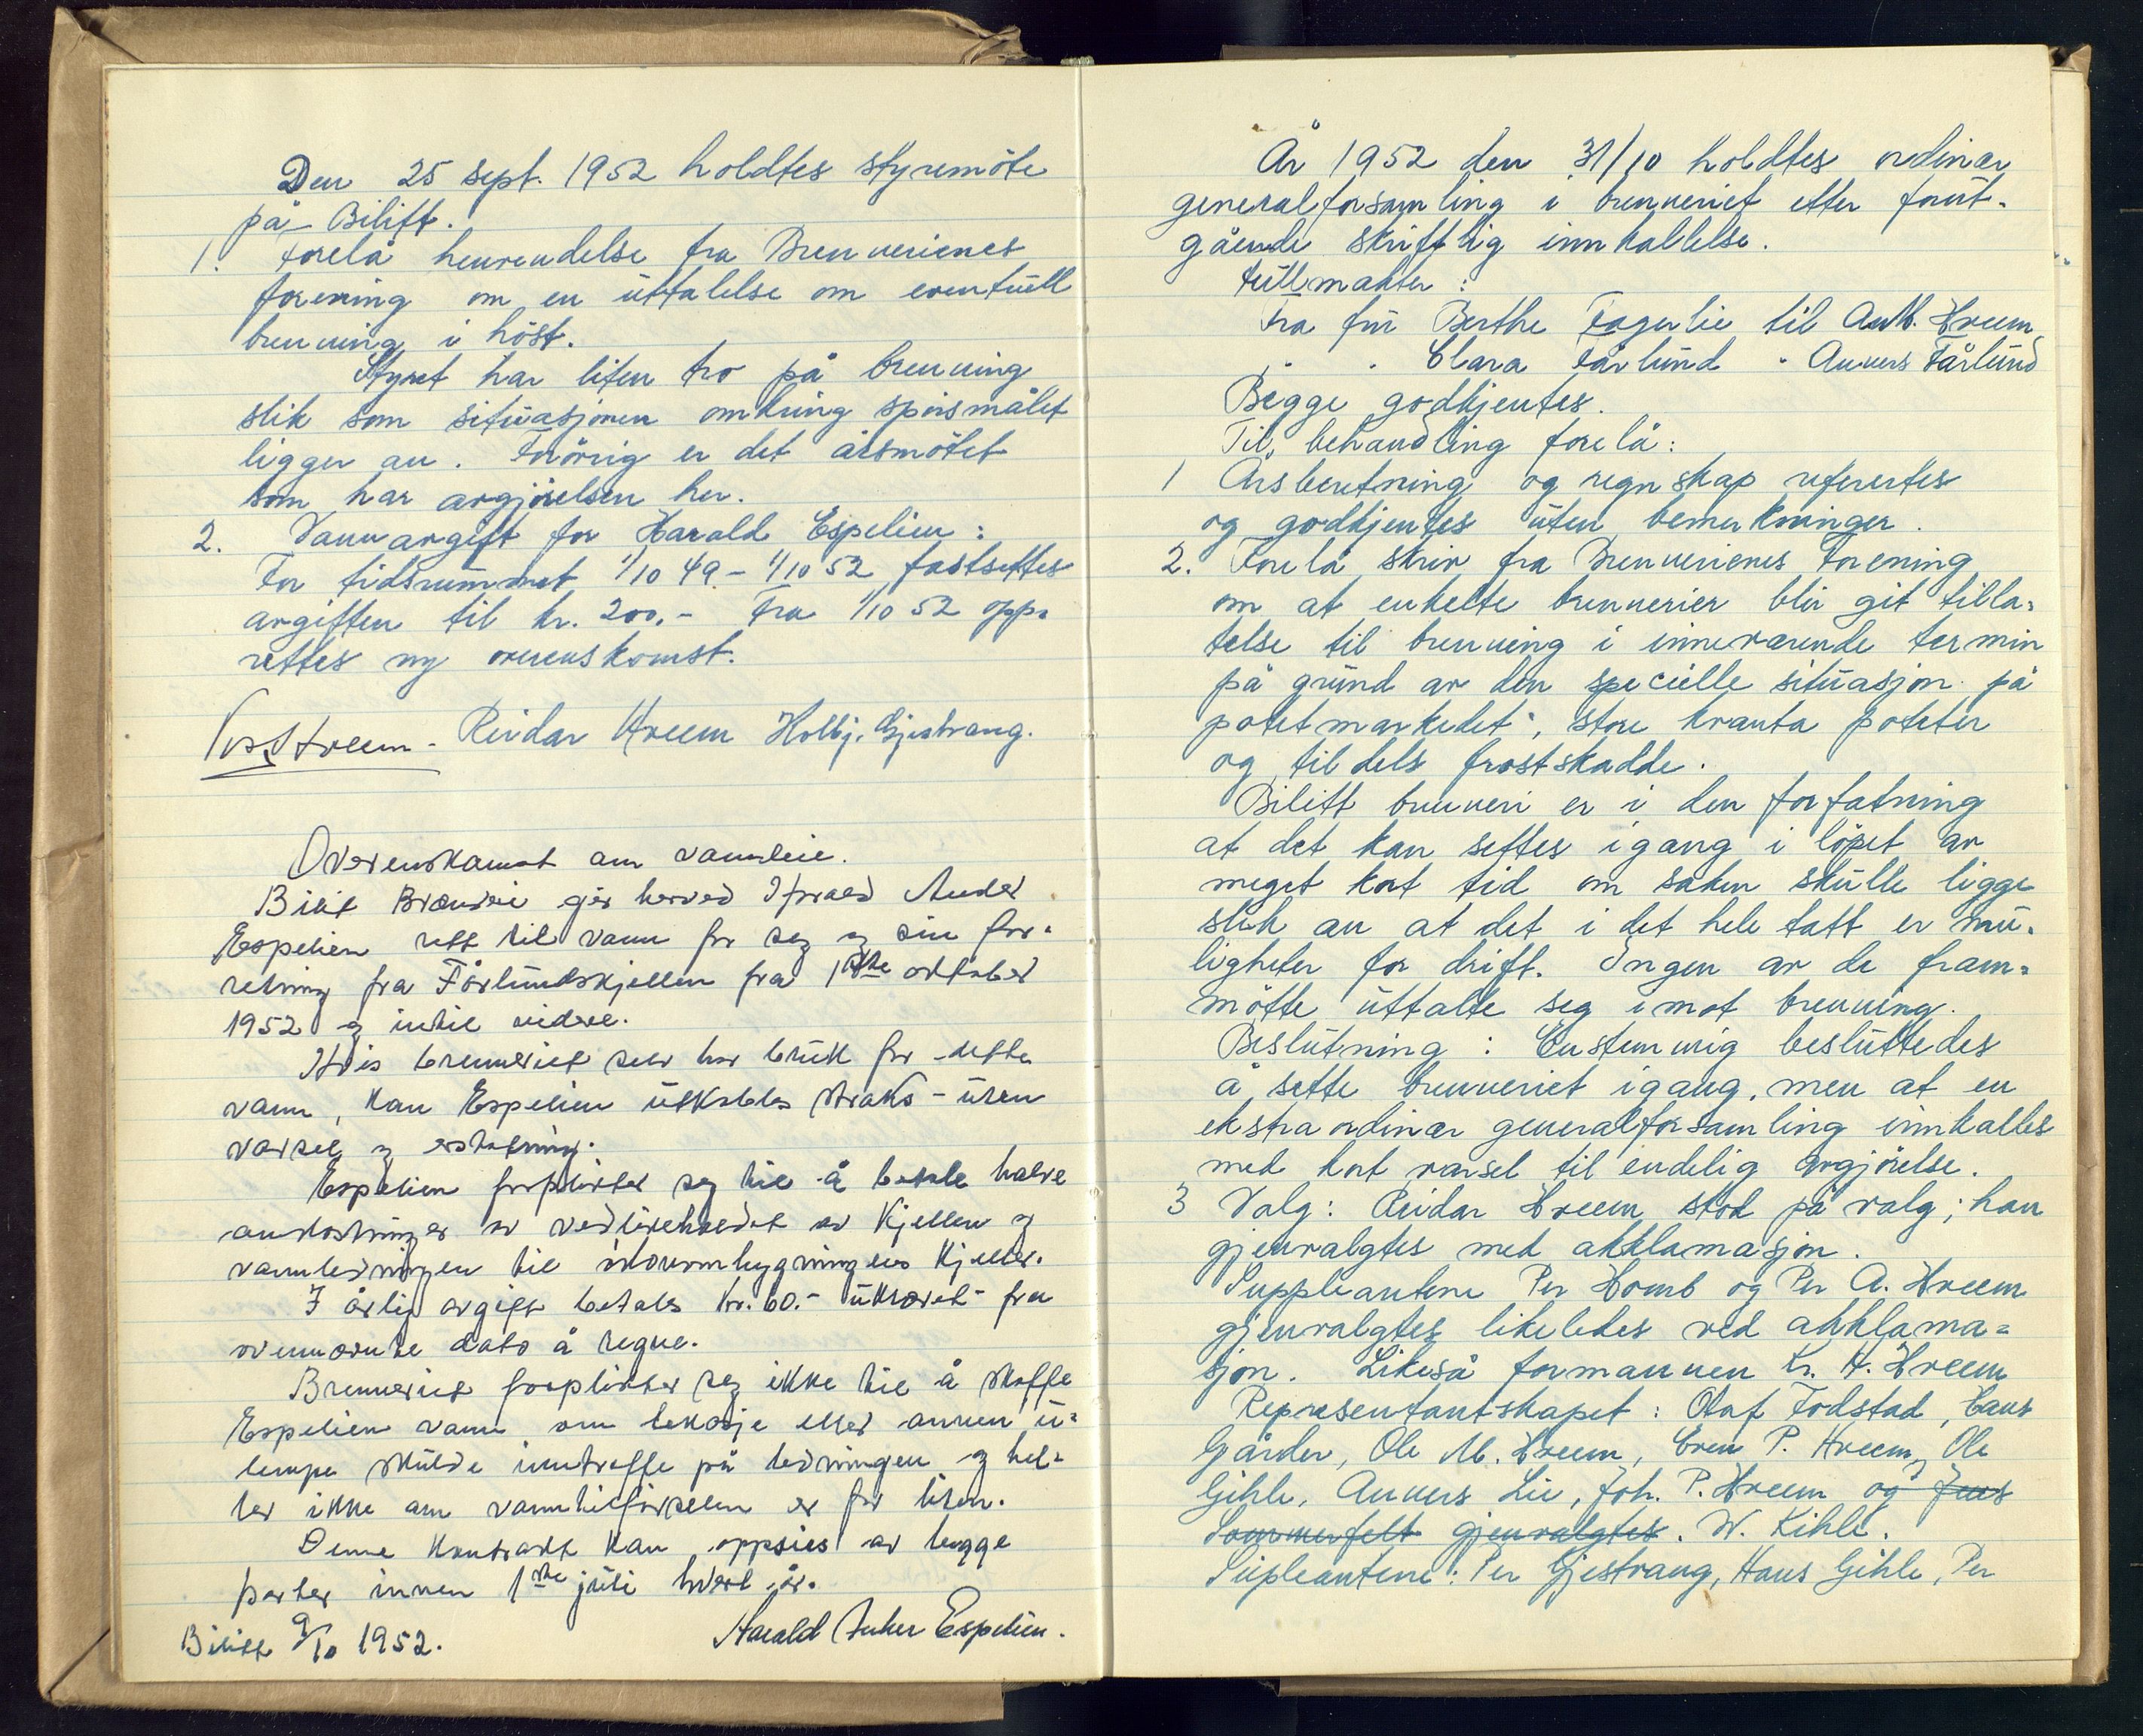 Den 25 sept. 1952 holdtes styremöte
på Bilitt.
1. Forelå henvendelse fra Brennerienes
forening om en uttalelse om eventuell
brenning i höst.
Styret har liten tro på brenning
slik som situasjonen omkring spörsmålet
ligger an. Forövrig er det årsmötet
som har avgjörelsen her.
2. Vannavgift for Harald Espelien:
For tidsrummet 1/10 49 - 1/10 52 fastsettes
avgiften til kr. 200.- Fra 1/10 52 opp-
rettes ny overenskomst.
Hveem - Reidar Hveem Holbj. Gjestvang.
Overenskomst om vannleie.
Bilit Brænneri gir herved Harald Anker
Espelien rett til vann for seg og sin for-
retning fra Fårlundskjellen fra 1ste oktober
1952 og intil videre.
Hvis brenneriet selv har bruk for dette
vann, kan Espelien utkobles straks - uten
varsel og erstatning.
Espelien forplikter seg til å betale halve
omkostninger av vedlikeholdet av Kjellen og
vannledningen til hovedbygningens Kjeller.
I årlig avgift betales kr. 60.- uksoret - fra
ovennevnte dato å regne.
Brenneriet forplikter seg ikke til å skaffe
Espelien vann om lekasje eller annen u-
lempe skulde inntreffe på ledningen og hel-
ler ikke om vanntilförselen er for liten.
Denne kontrakt kan oppsies av begge
parter innen 1ste juli hvert år.
Bilitt 9/10 1952. Harald Anker Espelien.
År 1952 den 31/10 holdtes ordinær
generalforsamling i brenneriet etter forut-
gående skriftlig innkallelse.
Fullmakter:
Fra fru Berthe Fagerlie til Anth. Hveem
" " Clara Fårlund " Anners Fårlund
Begge godkjentes.
Til behandling forelå:
1 Årsberetning og regnskap referertes
og godkjentes uten bemerkninger.
2. Forelå skriv fra Brennerienes Forening
om at enkelte brennerier blir git tilla-
telse til brenning i inneværende termin
på grund av den specielle situasjon på
potetmarkedet, store kvanta poteter
og tildels frostskadde.
Bilitt brenneri er i den forfatning
at det kan settes igang i löpet av
meget kort tid om saken skulle ligge
slik an at det i det hele tatt er mu-
ligheter for drift. Ingen av de fram-
mötte uttalte seg imot brenning.
Beslutning: Enstemmig besluttedes
å sette brenneriet igang, men at en
ekstraordinær generalforsamling innkalles
med kort varsel til endelig avgjörelse.
3 Valg: Reidar Hveem stod på valg; han
gjenvalgtes med akklamasjon.
Suppleantene Per Homb og Per A. Hveem
gjenvalgtes likeledes ved akklama-
sjon. Likeså formannen Kr. H. Hveem
Representantskapet: Olaf Fodstad, Hans
Gårder, Ole M. Hveem, Even P. Hveem, Ole
Gihle, Anners Lie, Joh. P. Hveem og Jens
Sommerfelt gjenvalgtes. W. Kihle.
Supleantene: Per Gjestvang, Hans Gihle, Per